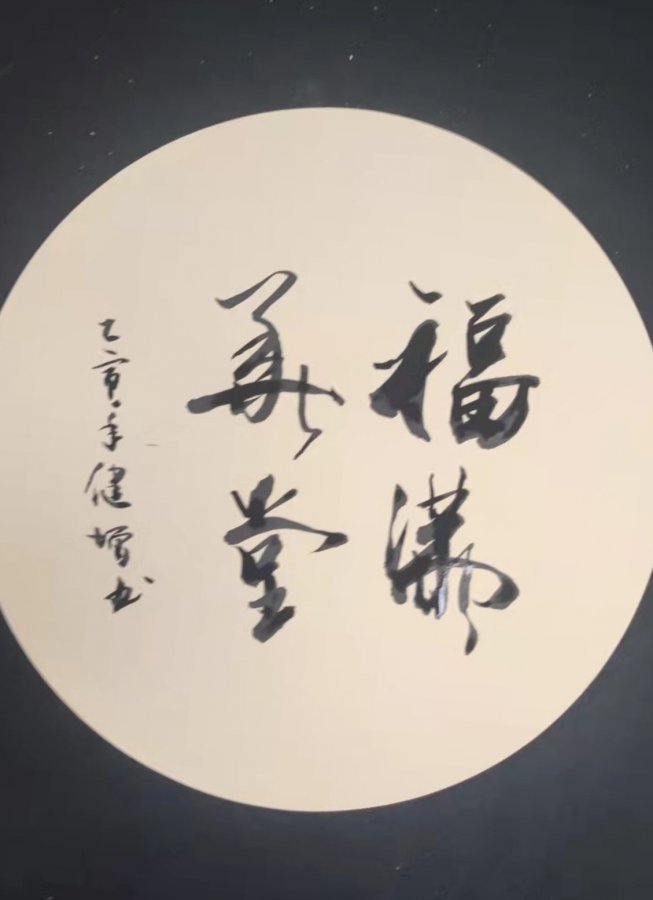 福满
華堂
壬寅年健增书